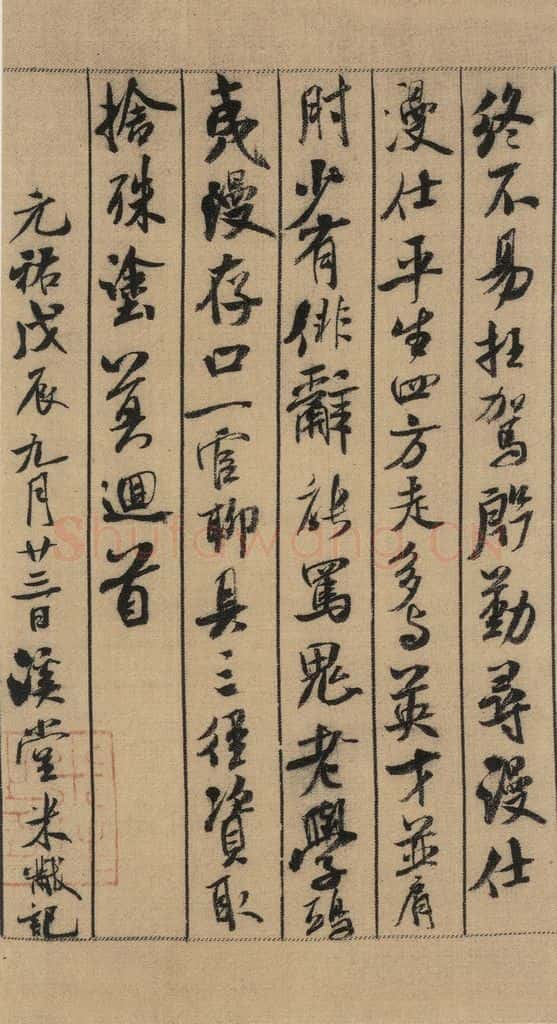 終不易枉駕殷勤尋漫仕
漫仕平生四方走多与英才並肩
肘少有俳辭能罵鬼老學鴟
夷漫存口一官聊具三徑資取
捨殊塗莫迴首
元祐戊辰九月廿三日溪堂米黻記
shufawang.cn